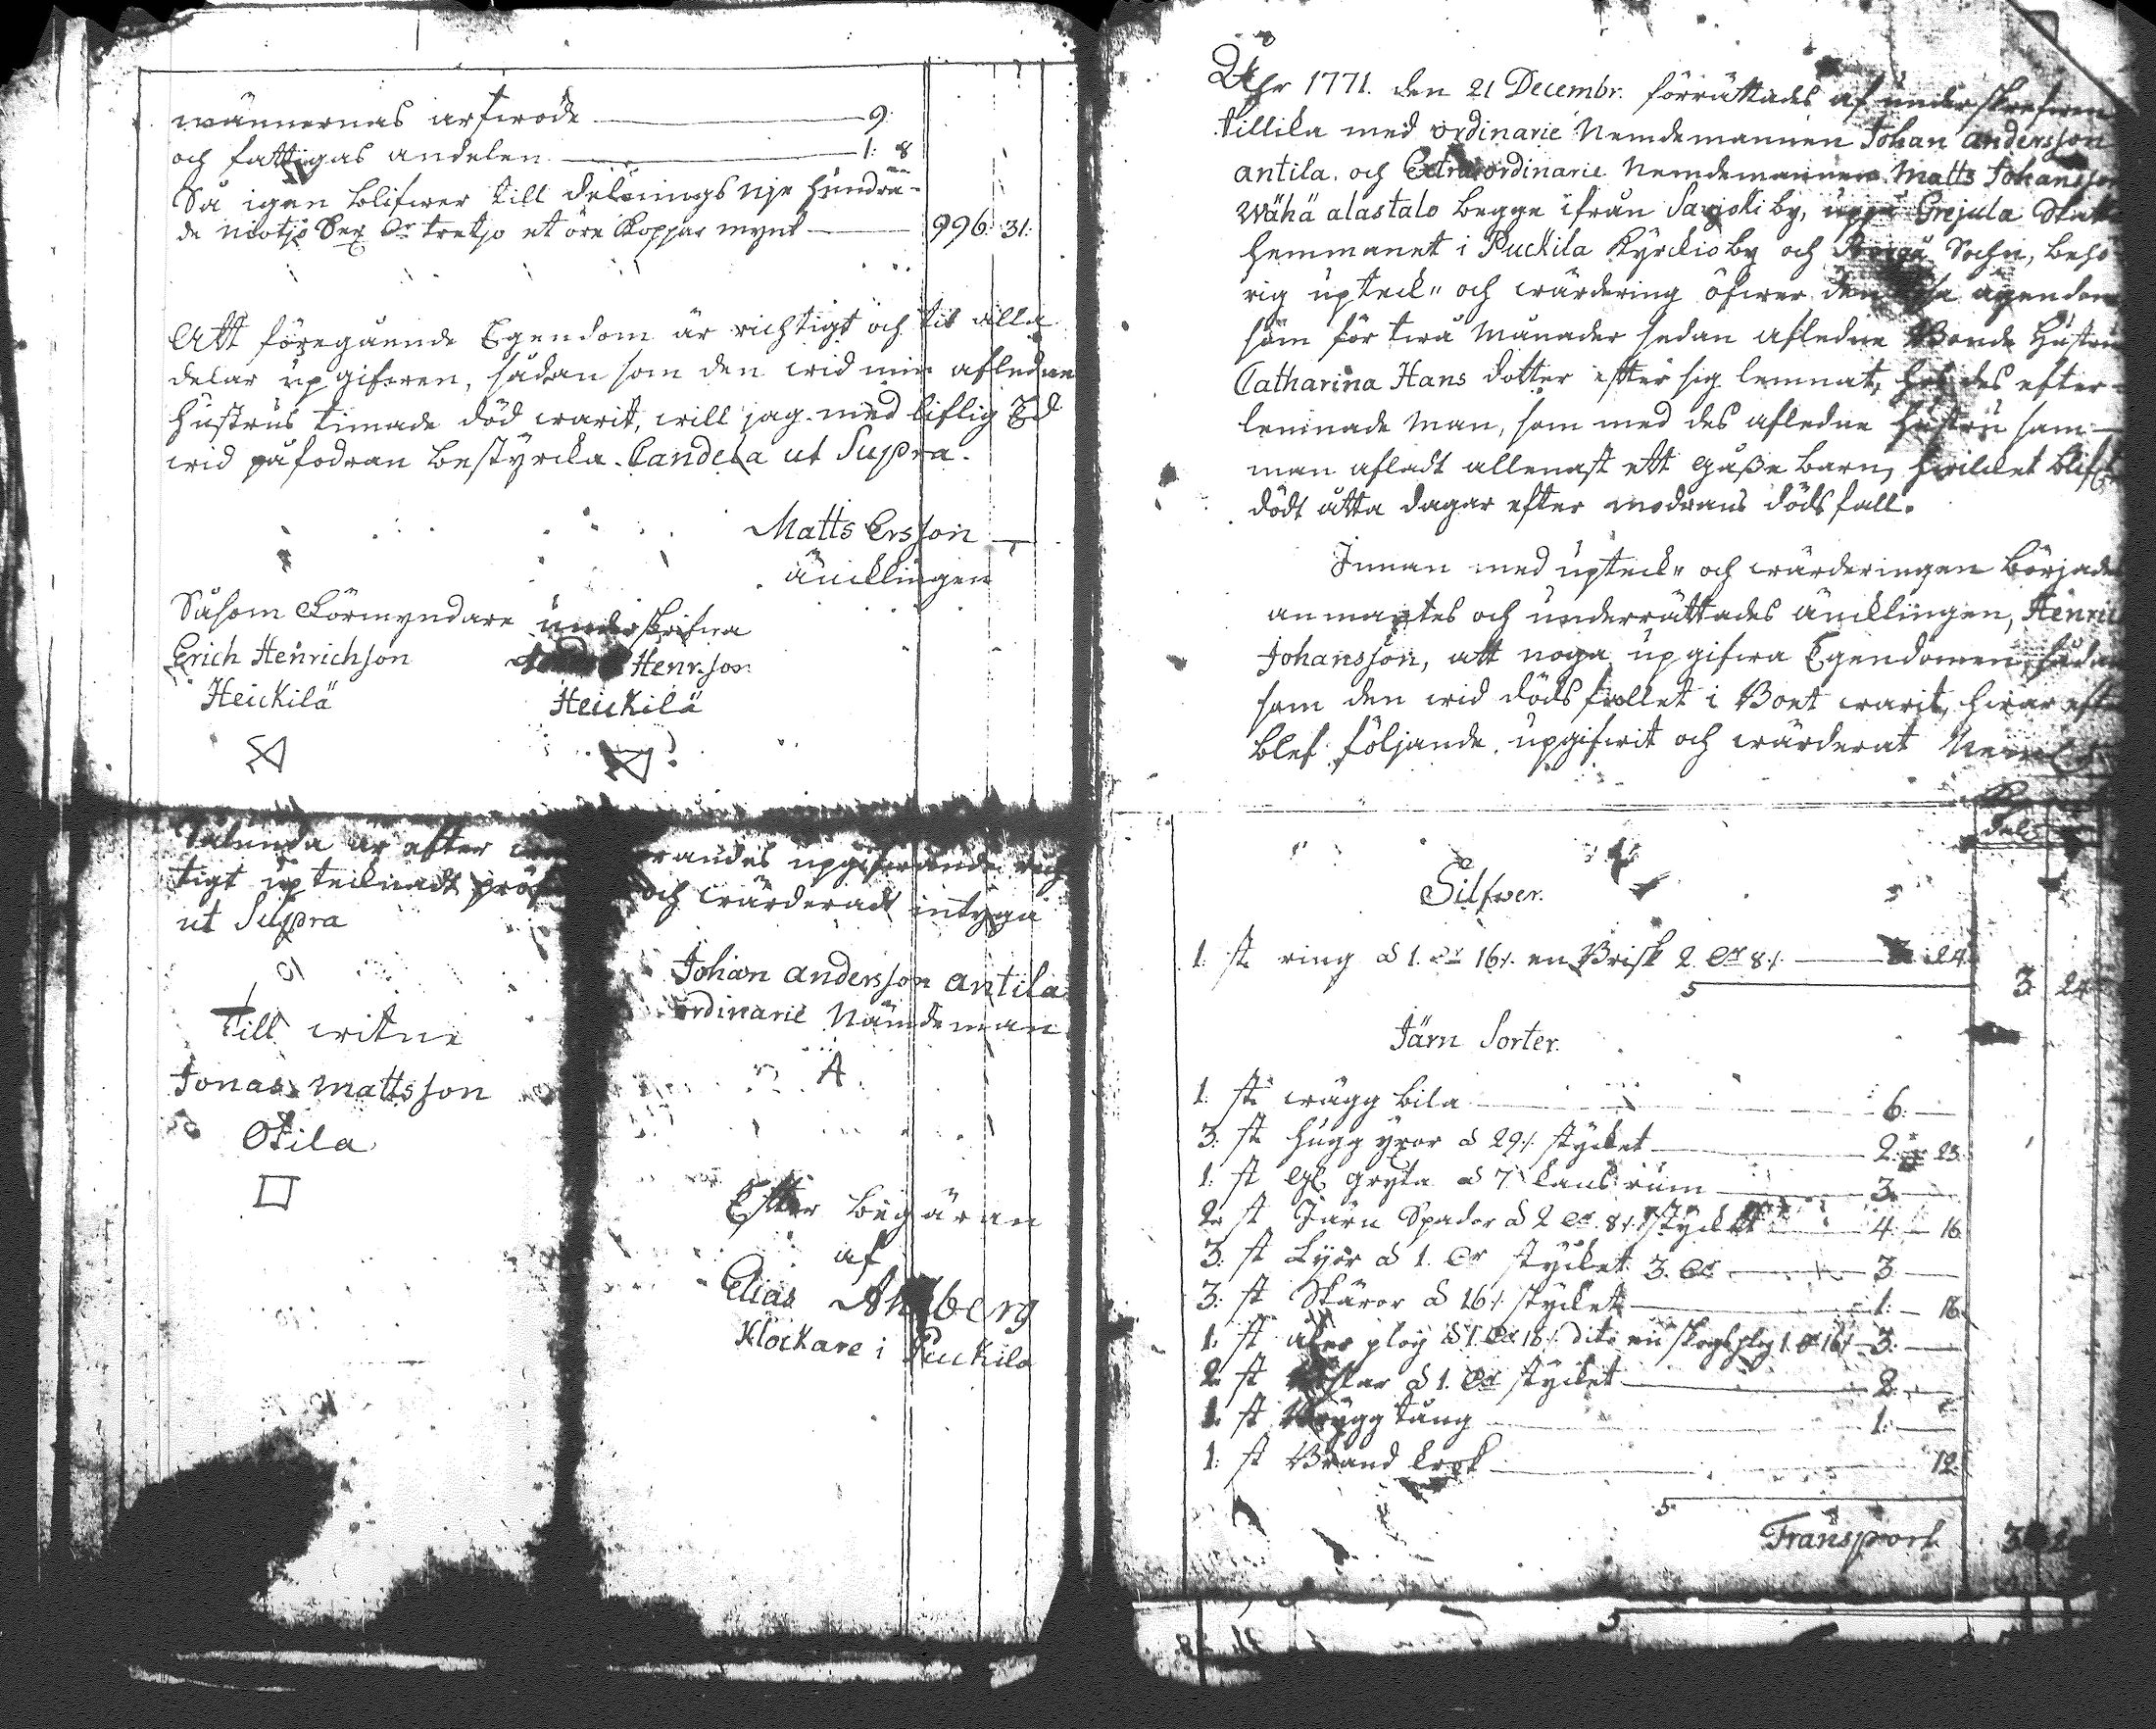 wännernas arfwode 9.
och fattigas andelen 1: 8
Så igen blifwer till delnings nije hundra-
de niotjo Sex Dr tretjo et öre Koppar mynt 996: 31:
Att föregående Egendom är richtigt och til alla
delar upgifwen, sådan som den wid min afledne
hustrus timade död warit, will jag med liflig Ed
wid påfodran bestyrcka. Candela ut Supra.
Matts Ersson
änklingen
Såsom Förmyndare underskrifwa
Erich Henrichson Henr:son
Heickilä Heickilä
efter randes upgifwande rich
tigt uptecknadt och wärderadt intyga
ut Supra
Johan andersson antila
ordinarie Nämdeman
Till witne
A
Jonas mattsson
Otila
Efter begäran
af
Elias berg
Klockare i Puckila
Åhr 1771. den 21 Decembr. förrättades af underskrefwen
tillika med ordinarie Nemdemannen Johan andersson
antila. och Extraordinarie Nemdemannen Matts Johansson
Wähä alastalo begge ifrån Savjoki by, uppå Grejula Skatte
hemmanet i Puckila Kyrckio by och Sochn, behö
rig upteck" och wärdering öfwer den ägendom
som för twå Månader sedan afledne Bonde hustru
Catharina Hans dotter efter sig lemnat, hos des efter-
lemnade Man, som med des afledne hustru sam-
man afladt allenast ett gåsse barn, hwilcket blifwit
dödt åtta dagar efter modrens dödsfall.
Innan med upteck" och wärderingen börjades
anmantes och underrättades äncklingen, Henric
Johansson, att noga upgifwa Egendomen, sådan
som den wid dödsfallet i Boet warit, hwar efter
blef följande upgifwit och wärderat
Silfwer.
1. st ring à 1. Dr 16/. en Brisk 2 Dr 8/. 24.
3 24
Järn Sorter.
1: st wägg bila 6.
3: st hugg yxor à 29/. stycket 2: 23.
1: st gryta à 7 kans rum 3.
2: st Järn Spador à 2 Dr. 8/. stycket 4. 16.
3: st Lyor à 1. Dr stycket 3. Dr 3.
3: st Skäror à 16/. stycket 1: 16.
1: st åker plog à 1. Dr 16/. dito en skogsplog 1. Dr 16/. 3.
2: st à 1. Dr stycket 2.
1: st tång 1:
1: st Brand krok 12.
Transport 3